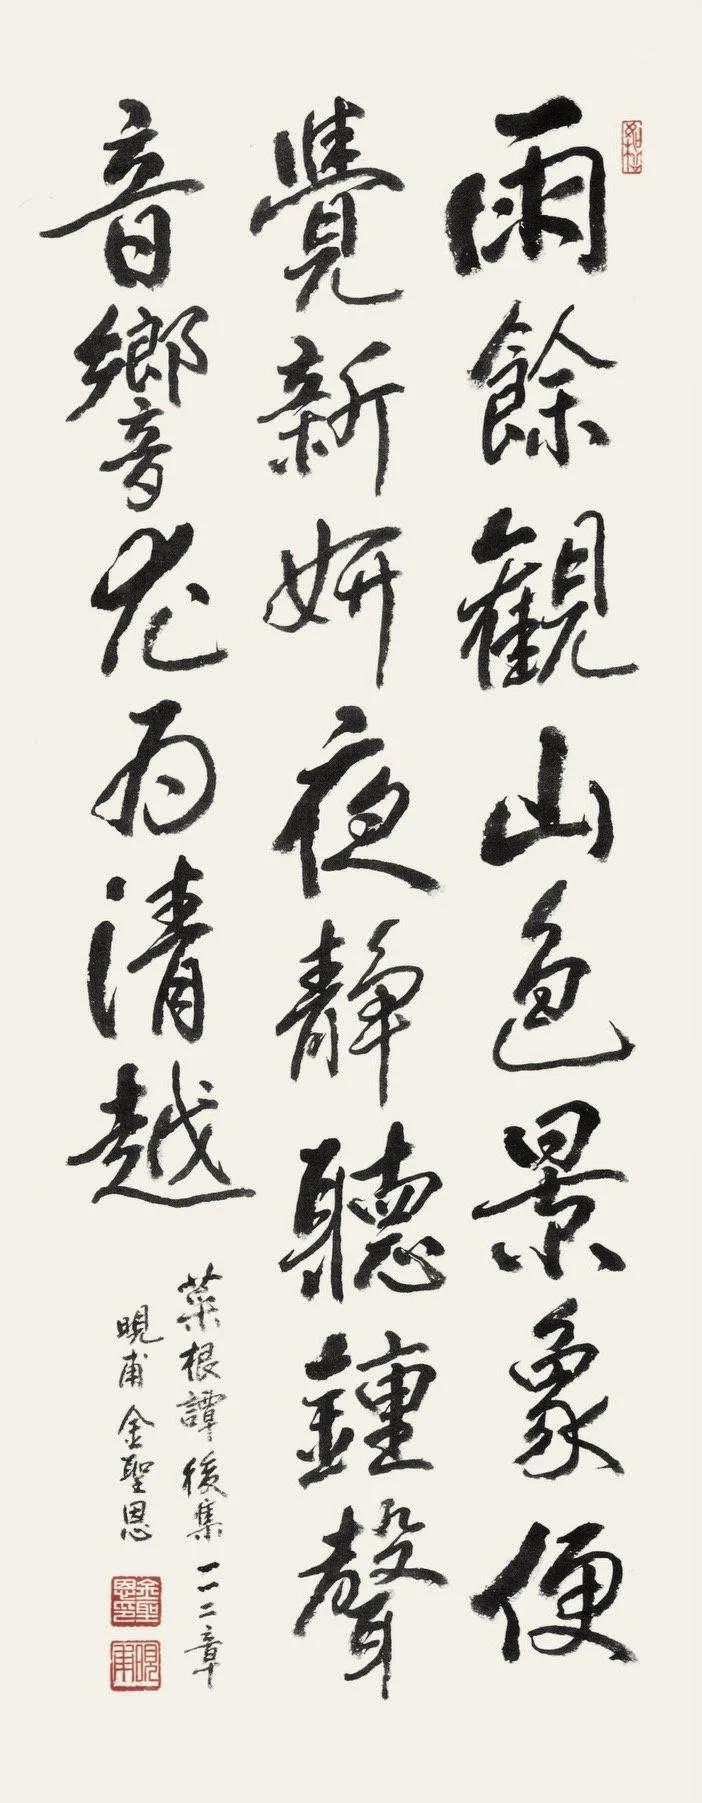 雨餘觀山色景象便
覺新妍夜靜聽鍾聲
音響尤為清越
菜根譚後集一一二章
晛甫金聖恩
金聖恩印
晛甫